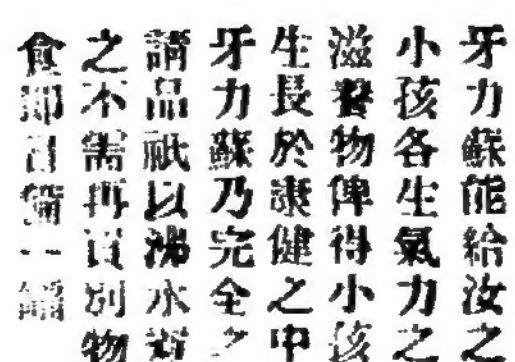 牙力蘇能給汝之
小孩各生氣力之
滋養物俾得小孩
生長於康健之中
牙力蘇乃完全之
品祇以湯水
之不需再買別物
食即自備一